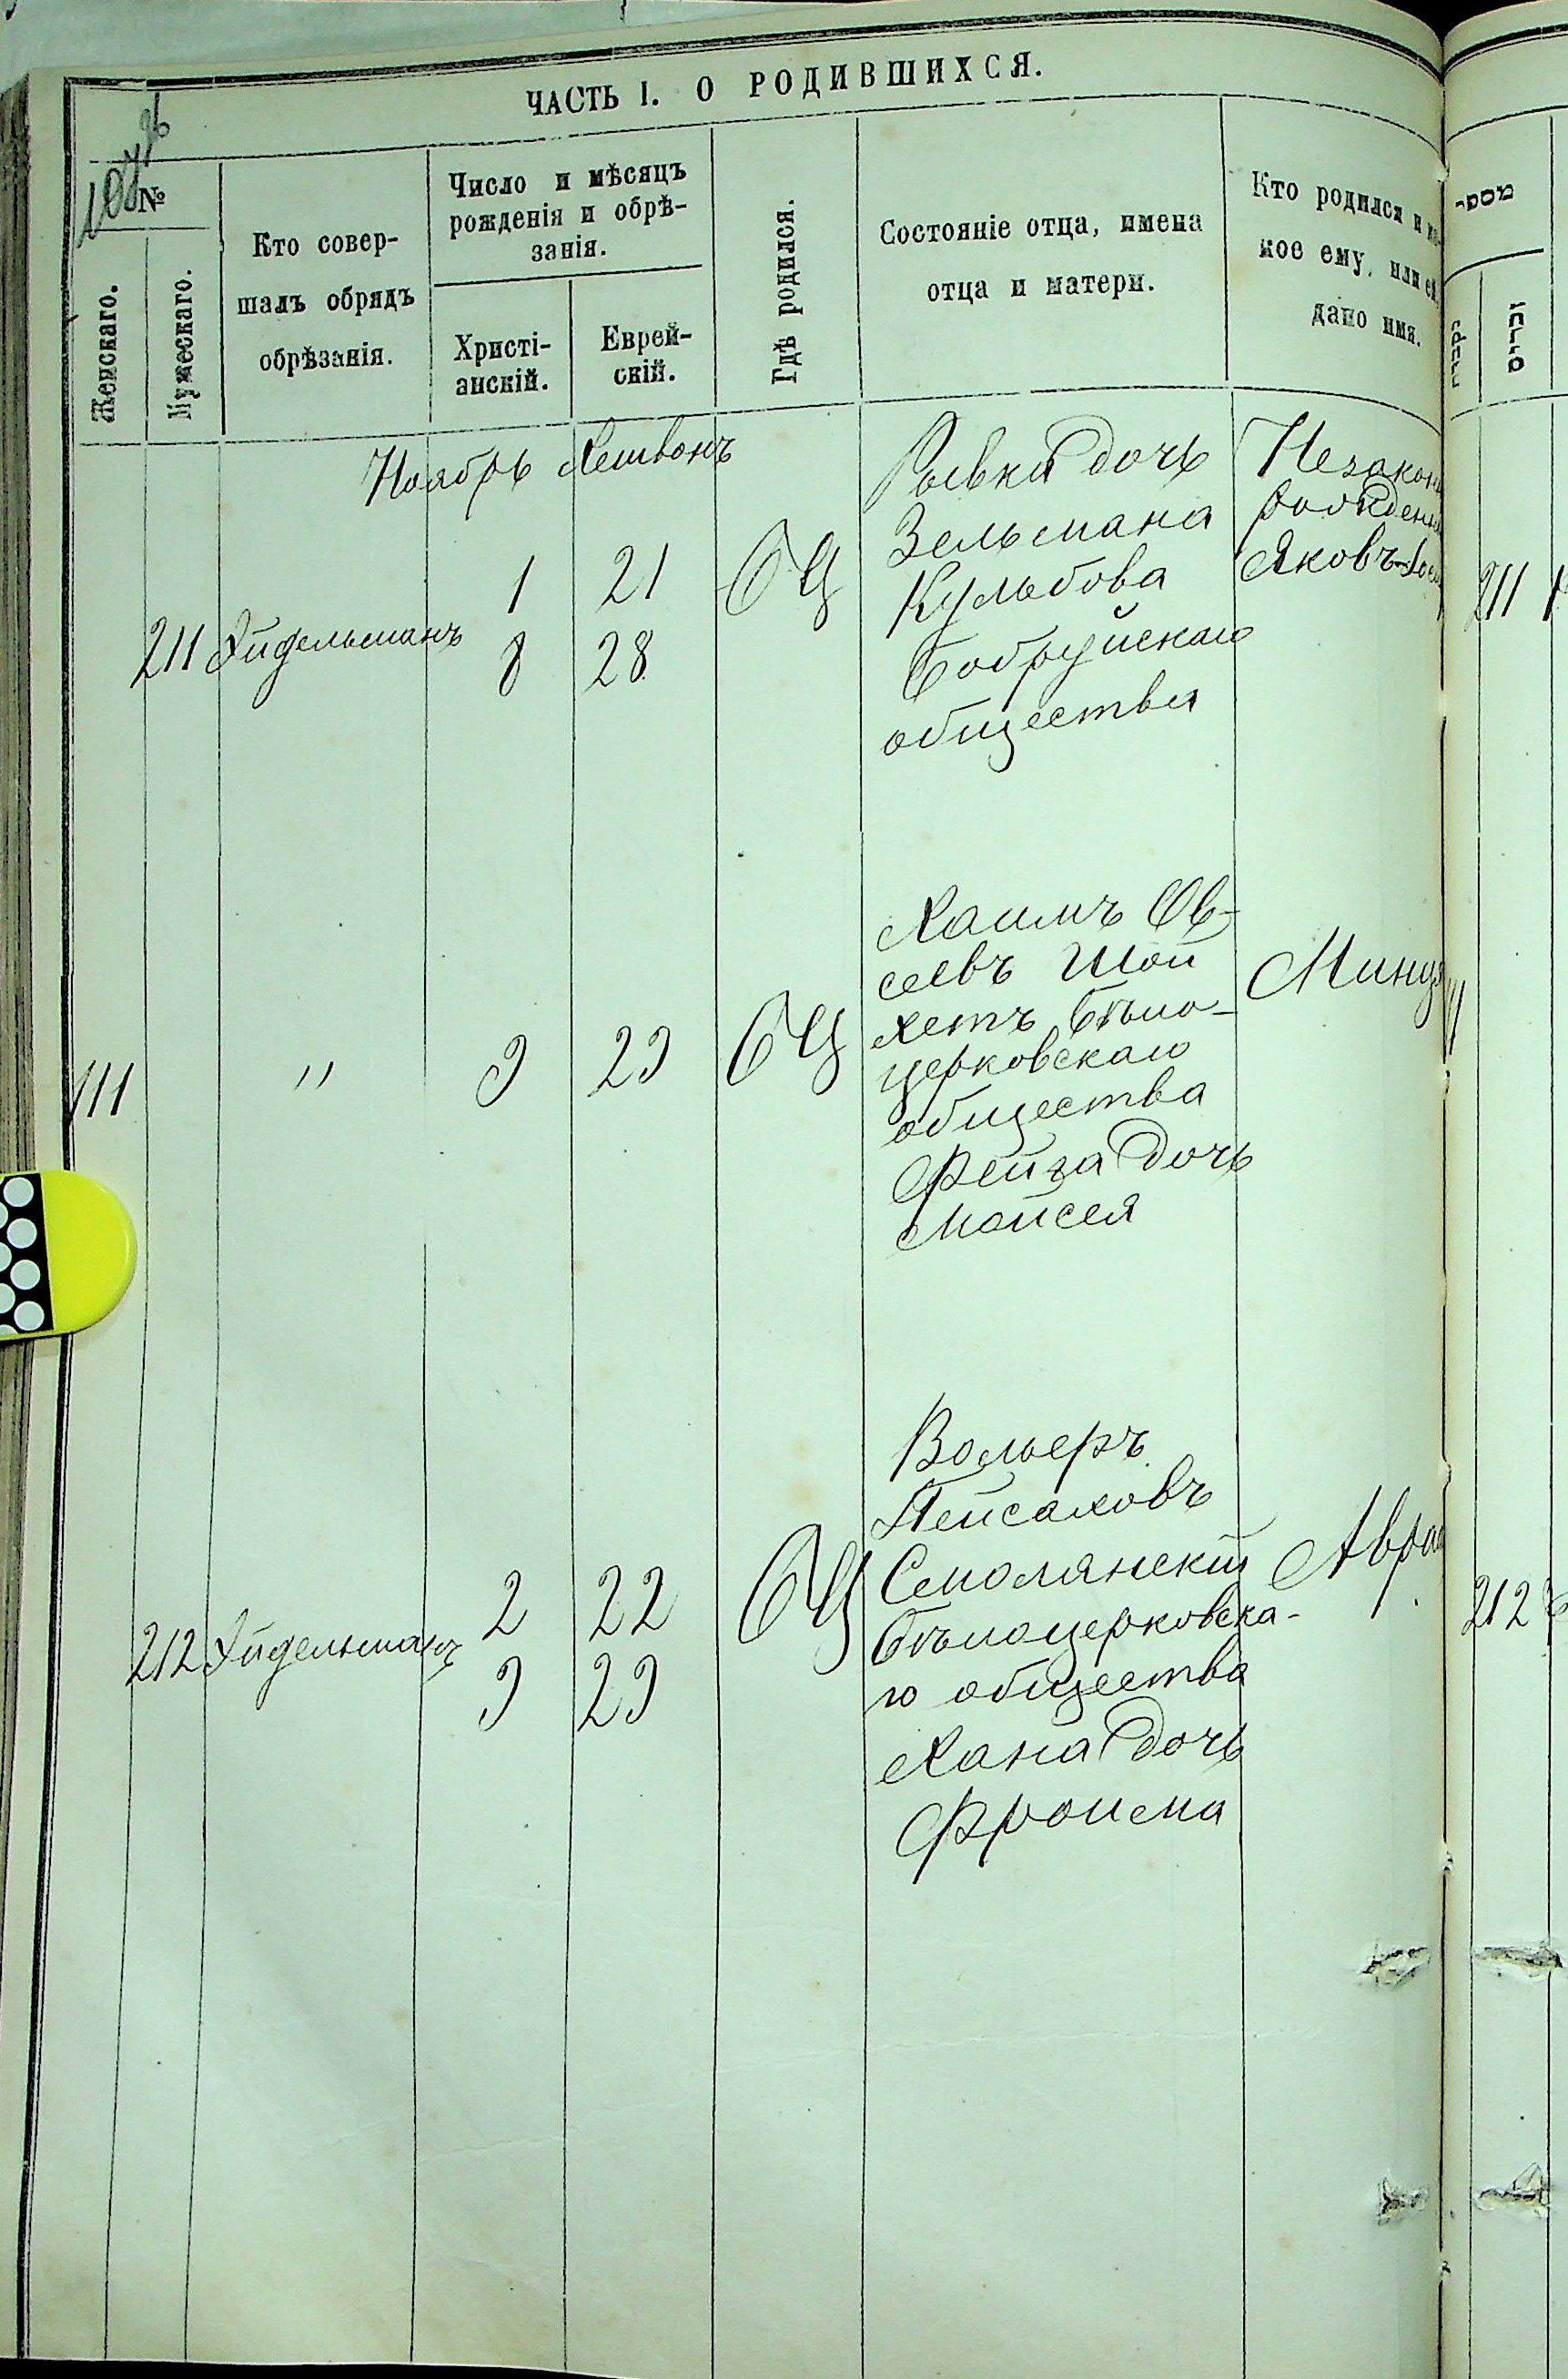 ЧАСТЬ I. О РОДИВШИХСЯ.
№
Женскаго.
Мужескаго.
Кто совер-
шалъ обрядъ
обрѣзанія.
Число и мѣсяцъ
рожденія и обрѣ-
занія.
Христі-
анскій.
Еврей-
скій.
Гдѣ родился.
Состояніе отца, имена
отца и матери.
Кто родился и ка-
кое ему, или ей
дано имя.
מספר
נקבות
זכרים
Ноябрь Хешвонъ
211 Эйдельманъ
1 21
8 28
БЦ
Рывка дочь
Зельмана
Кульбова
Бобруйскаго
общества
Незакон
рожден
Яковъ-
211
111 " 9 29 БЦ
Хаимъ Ов-
сеевъ Шой
хетъ Бѣло-
церковскаго
общества
Фейга дочь
Мойсея
Минд
212 Эйдельманъ
2 22
9 29
БЦ
Вольеръ
Пейсаховъ
Смолянскій
Бѣлоцерковска-
го общества
Хана дочь
Фроима
Авра
212